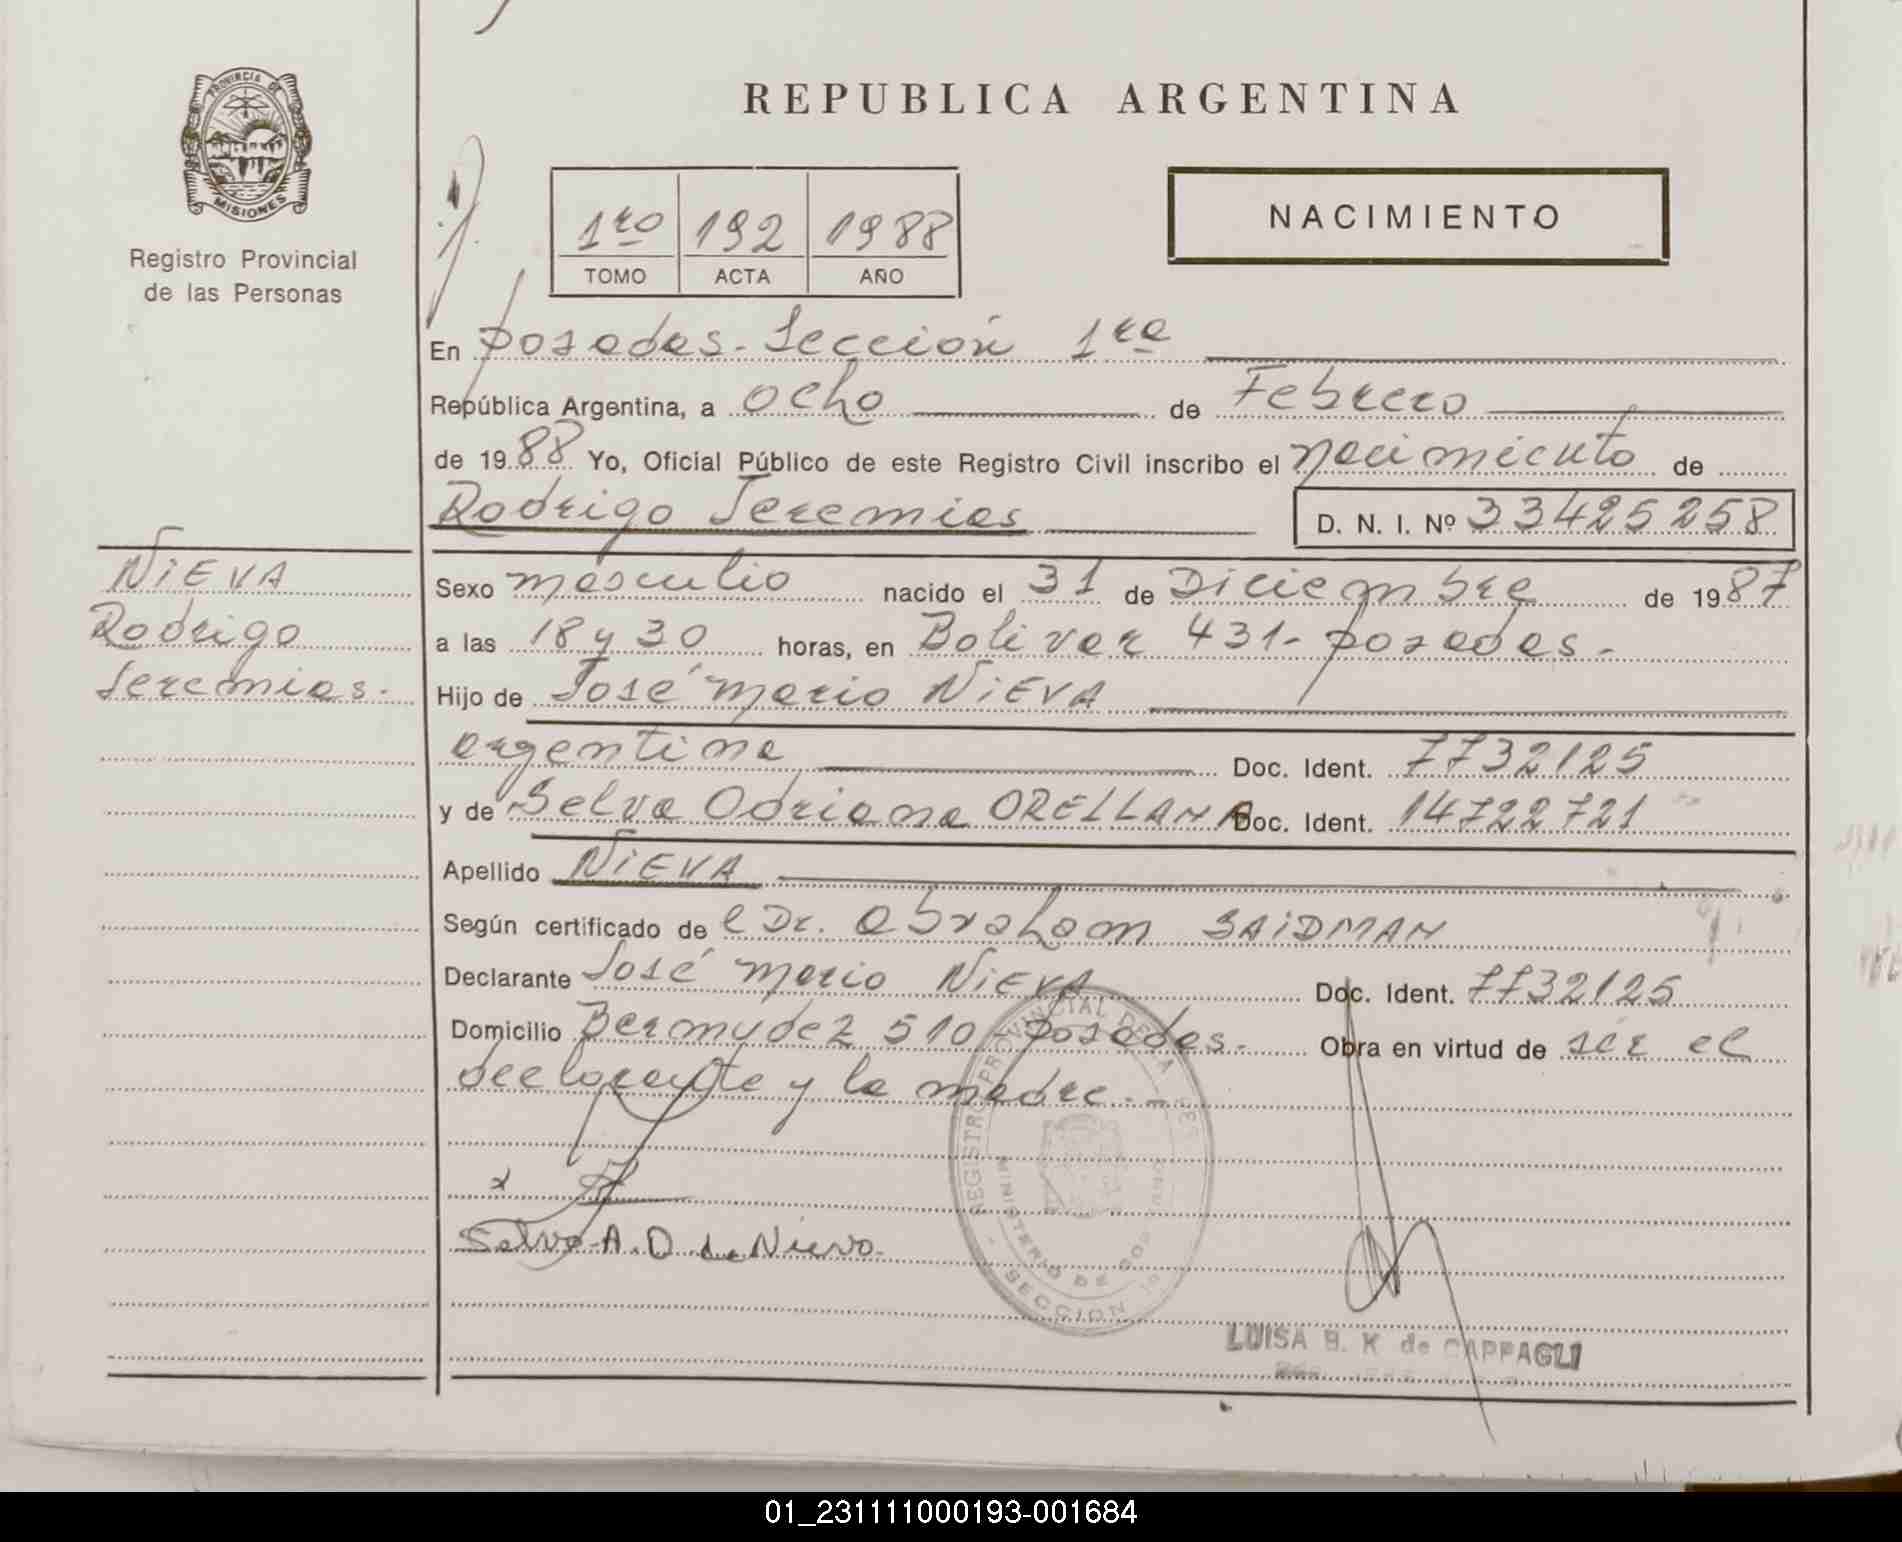 REPUBLICA ARGENTINA
PROVINCIA DE
MISIONES
Registro Provincial
de las Personas
1ro 192 1988
TOMO ACTA AÑO
NACIMIENTO
En Posadas - Sección 1ra
República Argentina, a ocho de Febrero
de 1988 Yo, Oficial Público de este Registro Civil inscribo el nacimiento de
Rodrigo Jeremias D. N. I. Nº 33425258
NIEVA
Rodrigo
Jeremias.-
Sexo masculio nacido el 31 de Diciembre de 1987
a las 18 y 30 horas, en Bolivar 431- Posadas.-
Hijo de José Mario NIEVA
argentina Doc. Ident. 7732125
y de Selva Adriana ORELLANA Doc. Ident. 14722721
Apellido NIEVA
Según certificado de el Dr. Abraham SAIDMAN
Declarante José Mario NIEVA Doc. Ident. 7732125
Domicilio Bermudez 510 Posadas.- Obra en virtud de ser el
declarante y la madre.-
Selva A. O de Nieva.
REGISTRO PROVINCIAL DE LA
MINISTERIO DE GOB
SECCION 1a
LUISA B. K de CAPPAGLI
01_231111000193-001684